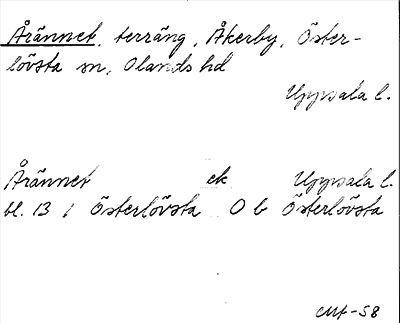 Årännet, terräng, Åkerby, Öster-
lövsta sn, Olands hd
Uppsala l.
Årännet ek Uppsala l.
bl. 13 i Österlövsta O b Österlövsta
-58